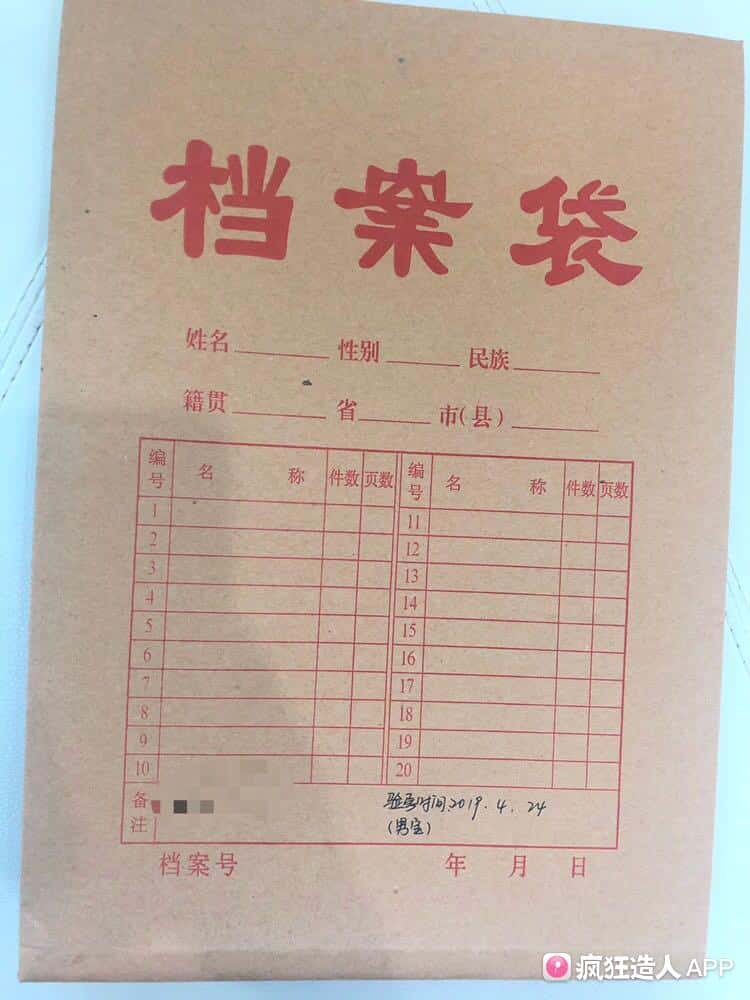 档案袋
姓名 性别 民族
籍贯 省 市(县)
编号 名 称 件数 页数 编号 名 称 件数 页数
1 11
2 12
3 13
4 14
5 15
6 16
7 17
8 18
9 19
10 20
备注 验孕时间2019.4.24
(男宝)
档案号 年 月 日
疯狂造人 APP